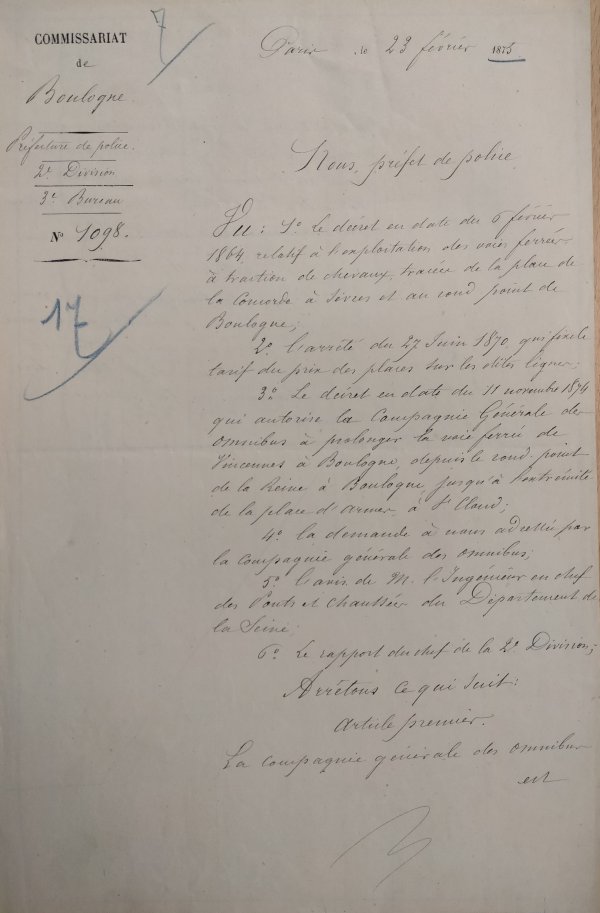 COMMISSARIAT
de
Boulogne
Préfecture de police.
2e Division
3e Bureau
No 1098.
7
17
Paris, le 23 février 1875
Nous, préfet de police
Vu: 1o Le décret en date du 6 février
1864, relatif à l'exploitation des voies ferrées
à traction de chevaux, tracée de la place de
la Concorde à Sèvres et au rond point de
Boulogne;
2o L'arrêté du 27 Juin 1870, qui fixe le
tarif du prix des places sur les dites lignes;
3o Le décret en date du 11 novembre 1874
qui autorise la Compagnie Générale des
Omnibus à prolonger la voie ferrée de
Vincennes à Boulogne, depuis le rond point
de la Reine à Boulogne jusqu'à l'extrémité
de la place d'Armes, à St Cloud;
4o la demande à nous adressée par
la Compagnie générale des omnibus;
5o L'avis de M. l'Ingénieur en chef
des Ponts et chaussées du Département de
la Seine;
6o Le rapport du chef de la 2e Division;
Arrêtons ce qui suit:
Article premier.
La compagnie générale des omnibus
est